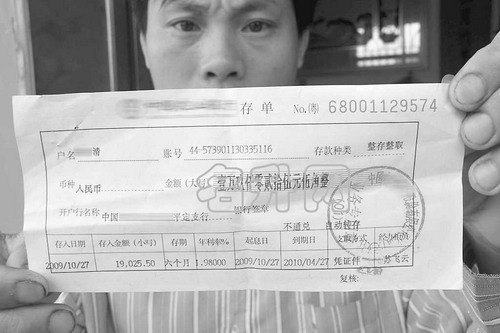 存单 No.(粤) 68001129574
户名 清 账号 44-573901130335116 存款种类 整存整取
币种 人民币 金额(大写) 壹万玖仟零贰拾伍元伍角整
开户行名称 中国 定支行 银行签章
不通兑 自动转存
存入日期 存入金额(小写) 存期 年利率% 起息日 到期日 支取方式 经办柜员
2009/10/27 19,025.50 六个月 1.98000 2009/10/27 2010/04/27 凭证件 苏飞云
复核: